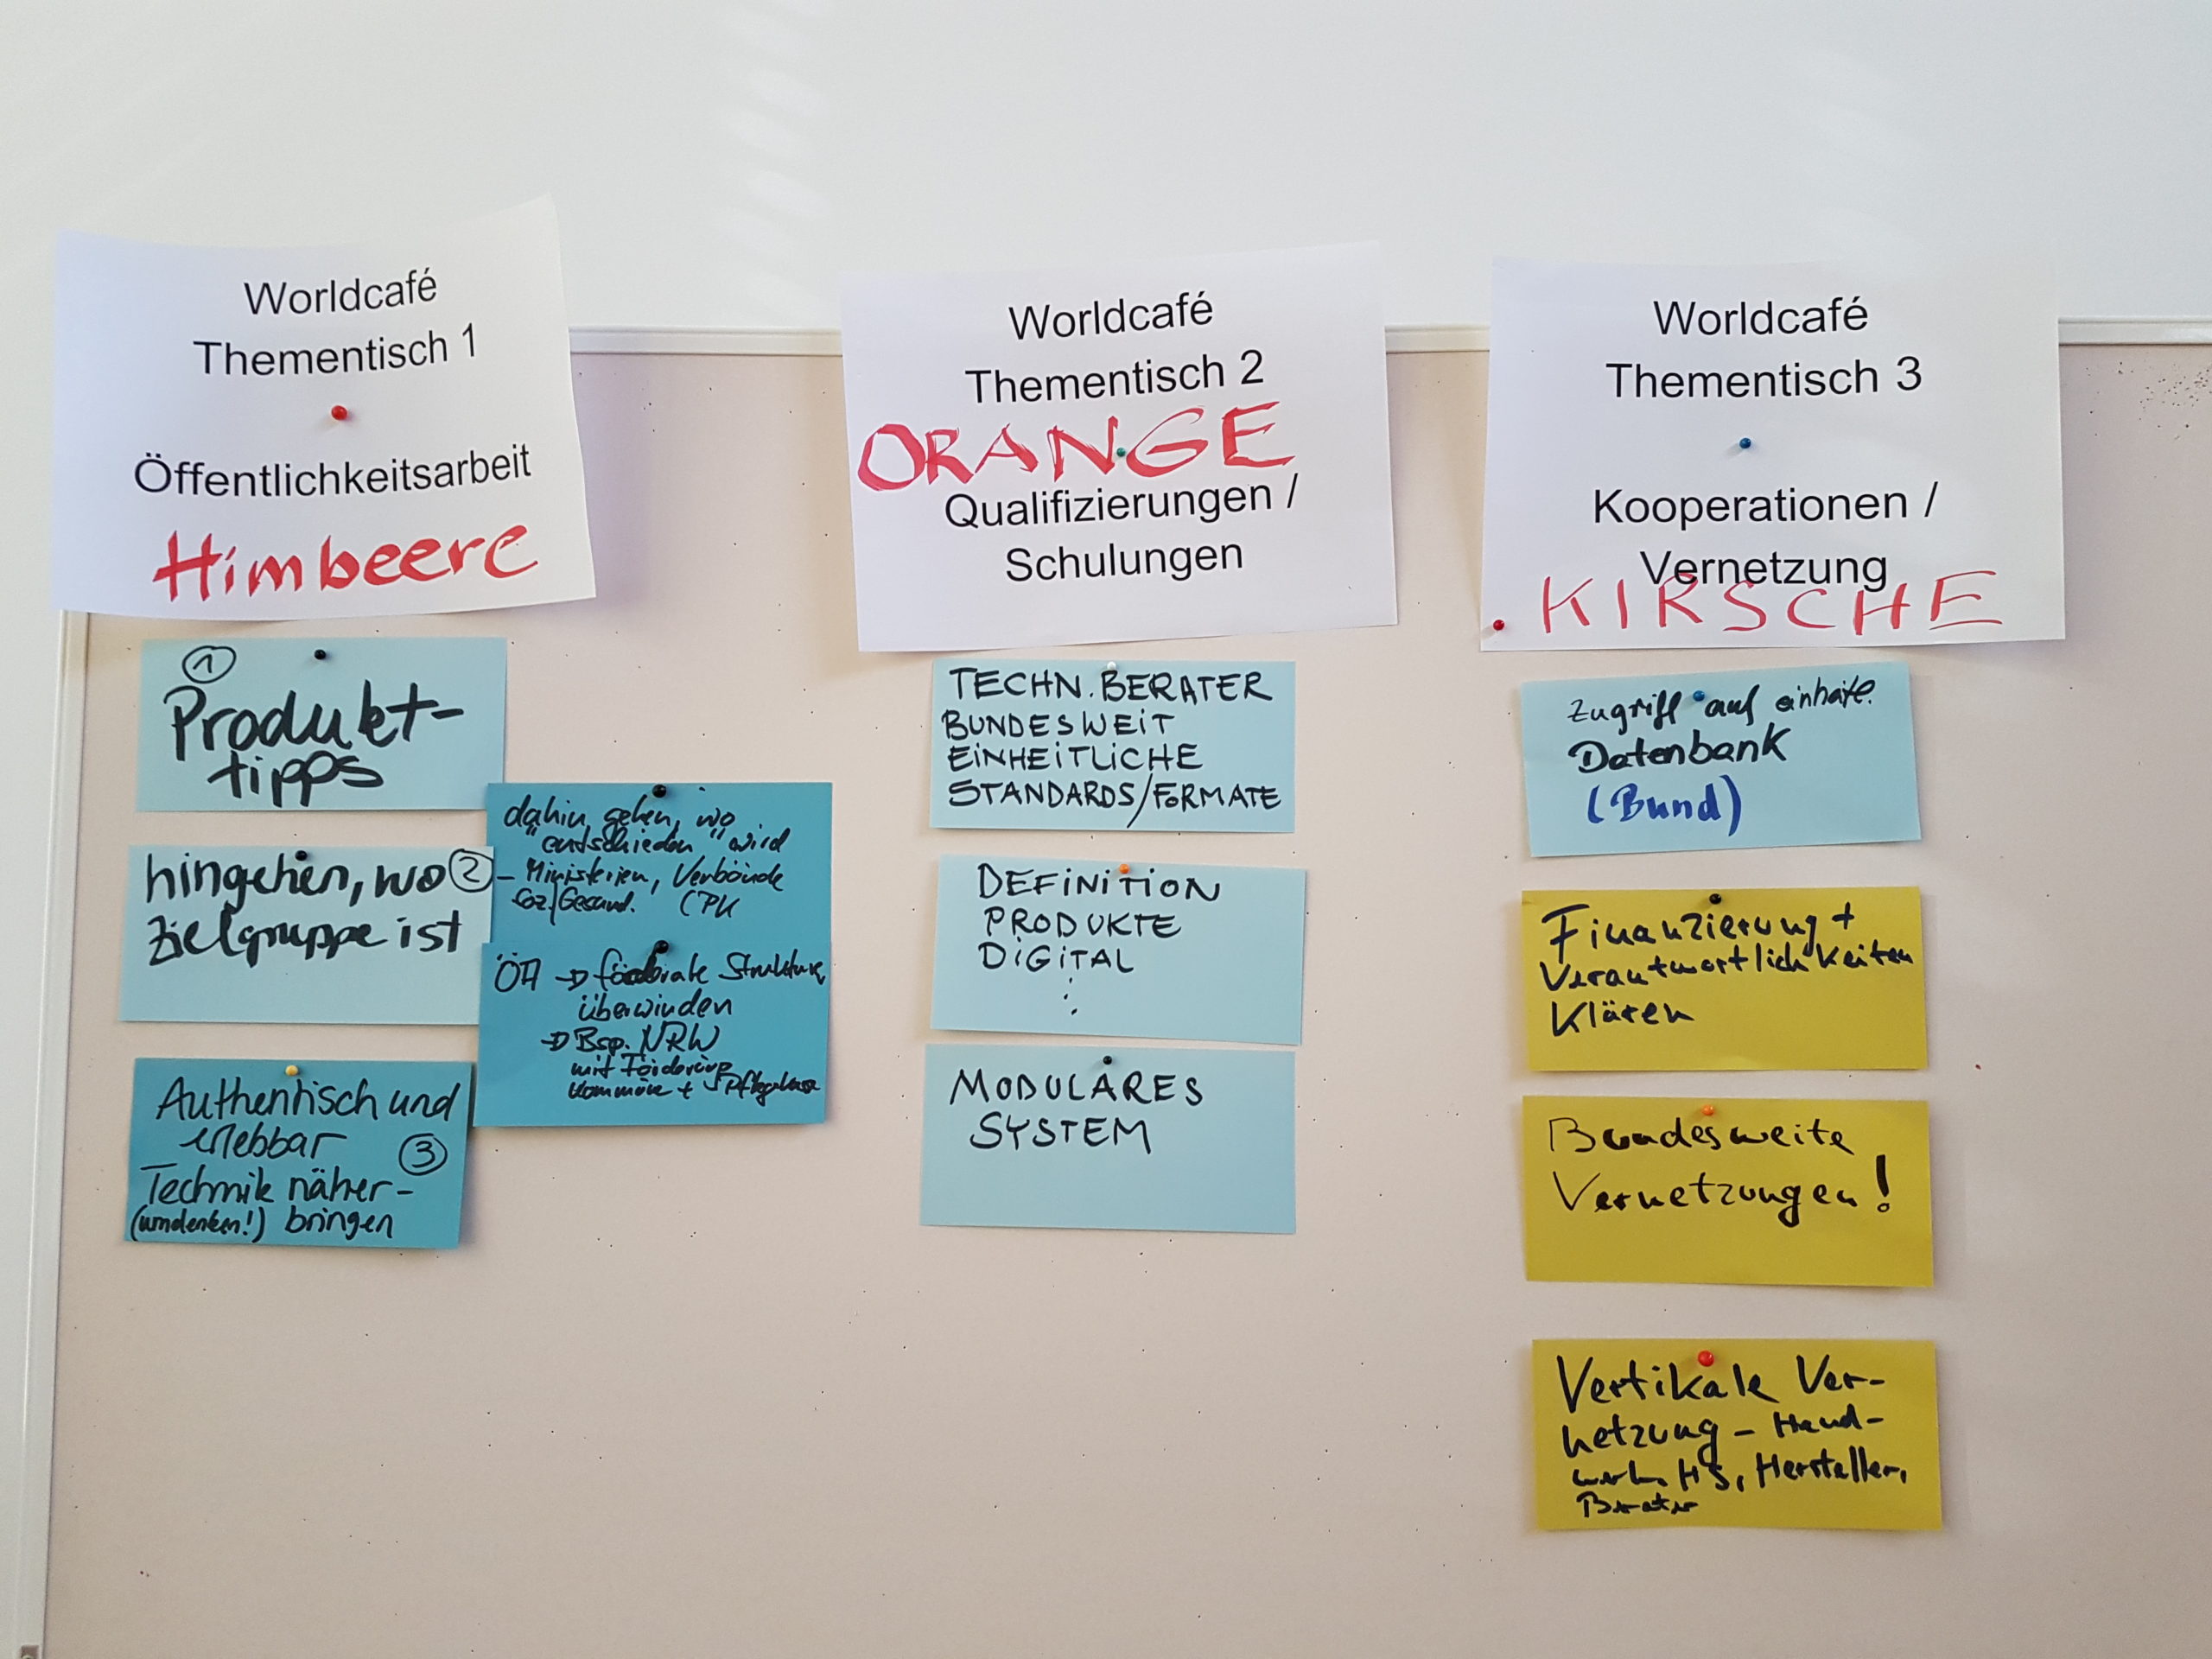 Worldcafé
Thementisch 1
Öffentlichkeitsarbeit
Himbeere
1
Produkt-
tipps
hingehen, wo 2
Zielgruppe ist
Authentisch und
erlebbar
3
Technik näher-
(umdenken!) bringen
dahin gehen, wo
"entschieden" wird
- Ministerien, Verbände
Soz/Gesund.
ÖA → föderale Strukturen
überwinden
→ Bsp. NRW
mit Förderung
Kommune + Pflegekasse
Worldcafé
Thementisch 2
ORANGE
Qualifizierungen /
Schulungen
TECHN. BERATER
BUNDESWEIT
EINHEITLICHE
STANDARDS/FORMATE
DEFINITION
PRODUKTE
DIGITAL
⋮
MODULARES
SYSTEM
Worldcafé
Thementisch 3
Kooperationen /
Vernetzung
KIRSCHE
Zugriff auf einheitl.
Datenbank
(Bund)
Finanzierung +
Verantwortlichkeiten
Klären
Bundesweite
Vernetzungen!
Vertikale Ver-
netzung - Hand-
werk, HS, Hersteller,
Berater